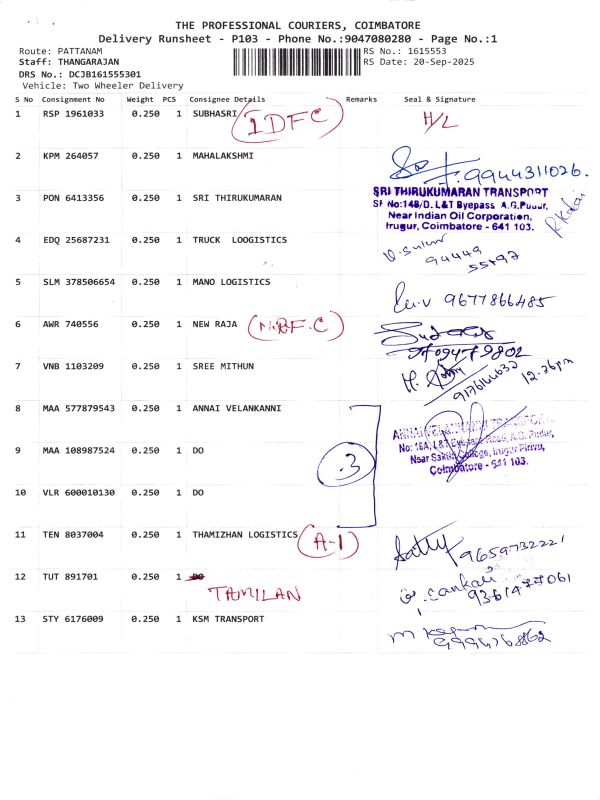 THE PROFESSIONAL COURIERS, COIMBATORE
Delivery Runsheet - P103 - Phone No.:9047080280 - Page No.:1
Route: PATTANAM RS No.: 1615553
Staff: THANGARAJAN RS Date: 20-Sep-2025
DRS No.: DCJB161555301
Vehicle: Two Wheeler Delivery
S No Consignment No Weight PCS Consignee Details Remarks Seal & Signature
1 RSP 1961033 0.250 1 SUBHASRI IDFC H/L
2 KPM 264057 0.250 1 MAHALAKSHMI 9944311026.
3 PON 6413356 0.250 1 SRI THIRUKUMARAN
SRI THIRUKUMARAN TRANSPORT
SF No:148/D. L&T Byepass A.G.Pudur,
Near Indian Oil Corporation,
Irugur, Coimbatore - 641 103.
4 EDQ 25687231 0.250 1 TRUCK LOOGISTICS
94449
55797
5 SLM 378506654 0.250 1 MANO LOGISTICS 9677866485
6 AWR 740556 0.250 1 NEW RAJA
7 VNB 1103209 0.250 1 SREE MITHUN 12.36pm
8 MAA 577879543 0.250 1 ANNAI VELANKANNI
9 MAA 108987524 0.250 1 DO 3
ANNAI VELANKANNI TRANSPORT
No: 16A, L&T Byepass Road, A.G. Pudur,
Near Sakthi College, Irugur Pirivu,
Coimbatore - 641 103.
10 VLR 600010130 0.250 1 DO
11 TEN 8037004 0.250 1 THAMIZHAN LOGISTICS A-1 9659732221
12 TUT 891701 0.250 1 DO
TAMILAN
9361477061
13 STY 6176009 0.250 1 KSM TRANSPORT